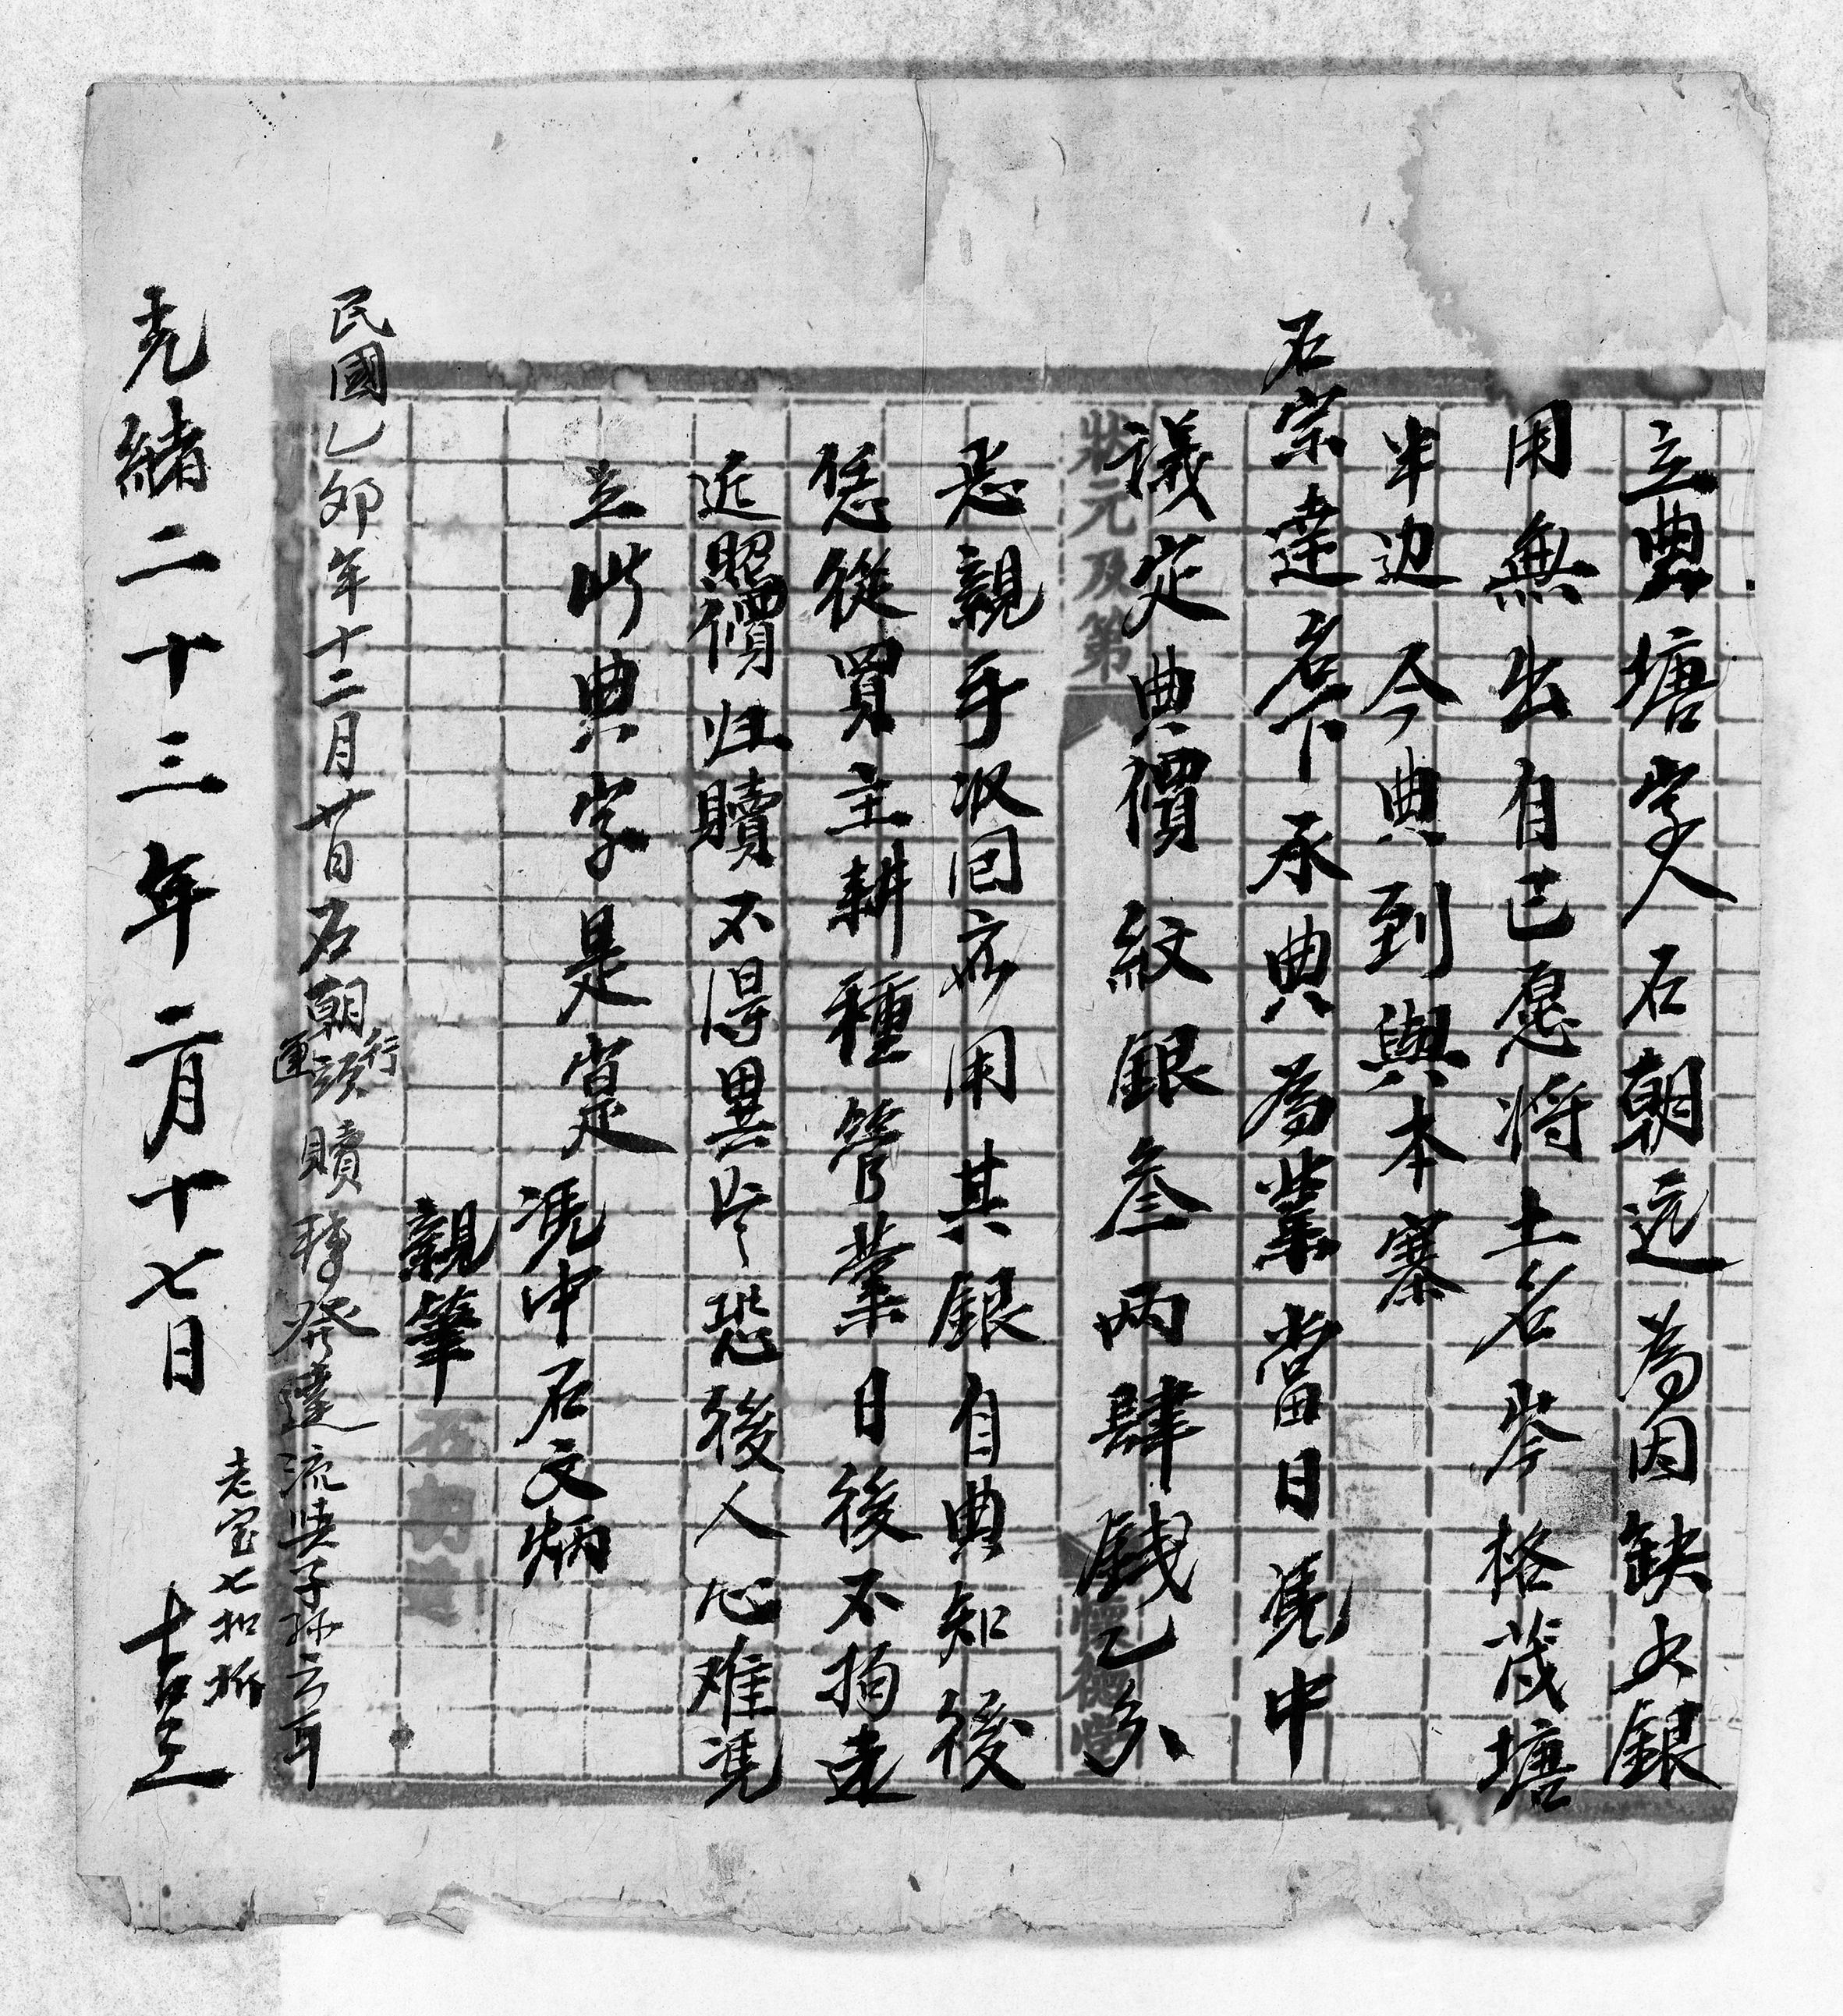 立典塘字人石朝远為因缺少銀
用無出自己愿将土名岑格茂塘
半边今典到與本寨
石宗達名下承典為業當日凭中
議定典價紋銀叁兩肆錢乙分
狀元及第
懷德堂
是親手收回应用其銀自典知後
恁從買主耕種管業日後不拘遠
近照價归贖不得異言恐後人心难凭
立此典字是實
凭中石文炳
親筆
民國乙卯年十二月廿日石朝運源行贖轉發達流與子孫立耳
老宝七扣拆
光緒二十三年二月十七日 吉立